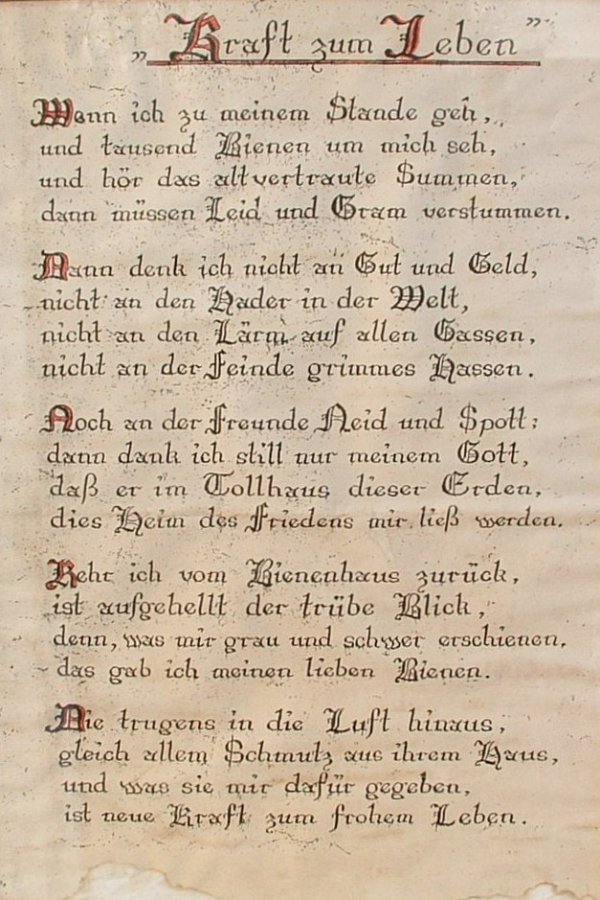 „Kraft zum Leben”
Wenn ich zu meinem Stande geh,
und tausend Bienen um mich seh,
und hör das altvertraute Summen,
dann müssen Leid und Gram verstummen.
Dann denk ich nicht an Gut und Geld,
nicht an den Hader in der Welt,
nicht an den Lärm auf allen Gassen,
nicht an der Feinde grimmes Hassen.
Noch an der Freunde Neid und Spott;
dann dank ich still nur meinem Gott,
daß er im Tollhaus dieser Erden,
dies Heim des Friedens mir ließ werden.
Kehr ich vom Bienenhaus zurück,
ist aufgehellt der trübe Blick,
denn, was mir grau und schwer erschienen,
das gab ich meinen lieben Bienen.
Die trugens in die Luft hinaus,
gleich allem Schmutz aus ihrem Haus,
und was sie mir dafür gegeben,
ist neue Kraft zum frohem Leben.